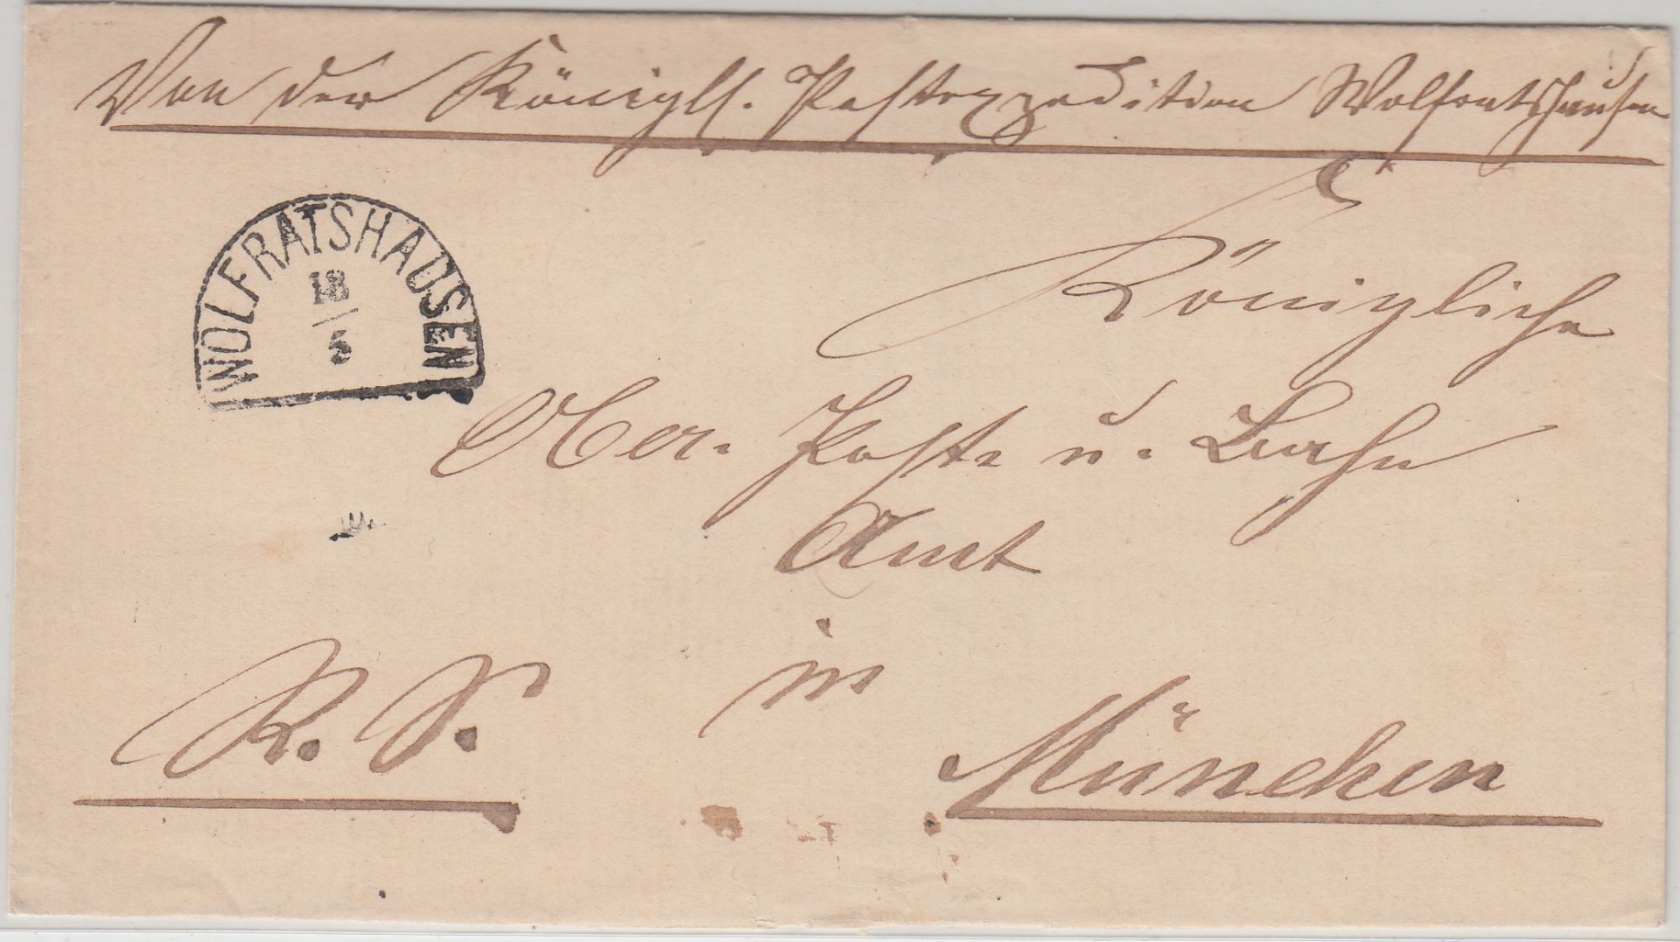 Von der Königl. Postexpedition Wolfratshausen
WOLFRATSHAUSEN
18
/
5
Königliche
Ober- Post- u. Bahn
Amt
in
R. S.
München